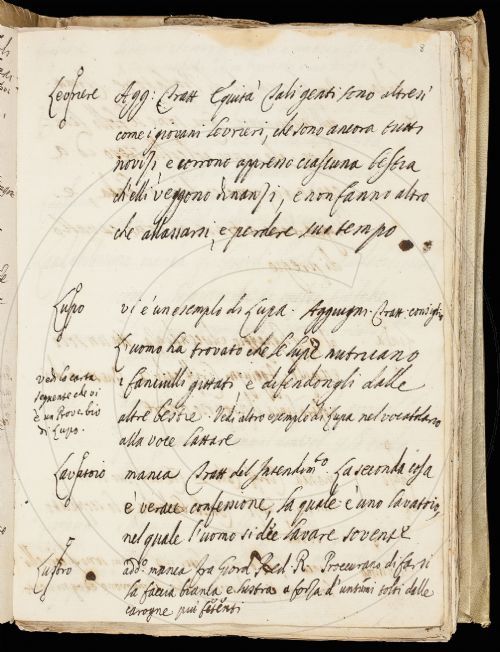 8
Levriere Agg: Tratt Equità Tali genti sono altresi
come i giovani levrieri, che sono ancora tutti
novizi e corrono appresso ciascuna bestia
ch'elli veggono dinanzi, e non fanno altro
che allassarsi, e perdere suo tempo
Lupo vi è un esemplo di Lupa. Aggiugni. Tratt. consigli.
L'uomo ha trovato che le lupe nutricano
i fanciulli gittati e difendongli dalle
vedi la carta
seguente che vi
è un Proverbio
di Lupo.
altre bestie. Vedi altro esemplo di Lupa nel vocabolario
alla voce lattare
Lavatoio manca Tratt del Intendim.to La seconda cosa
è verace confessione, la quale è uno lavatoio,
nel quale l'uomo si dee lavare sovente
Lustro manca fra Giord. Pred. R. Procurano di farsi
la faccia bianca e lustra a forza d'untumi tolti dalle
carogne più fetenti